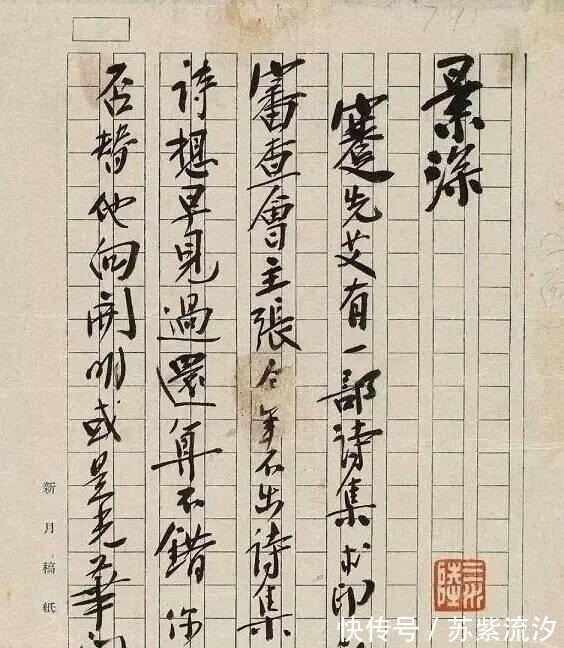 景深
蹇先艾有一部诗集求印
審查會主張今年不出诗集
诗想早見過還算不錯你
否替他向開明或是光華
新月稿紙
快传号/苏紫流汐